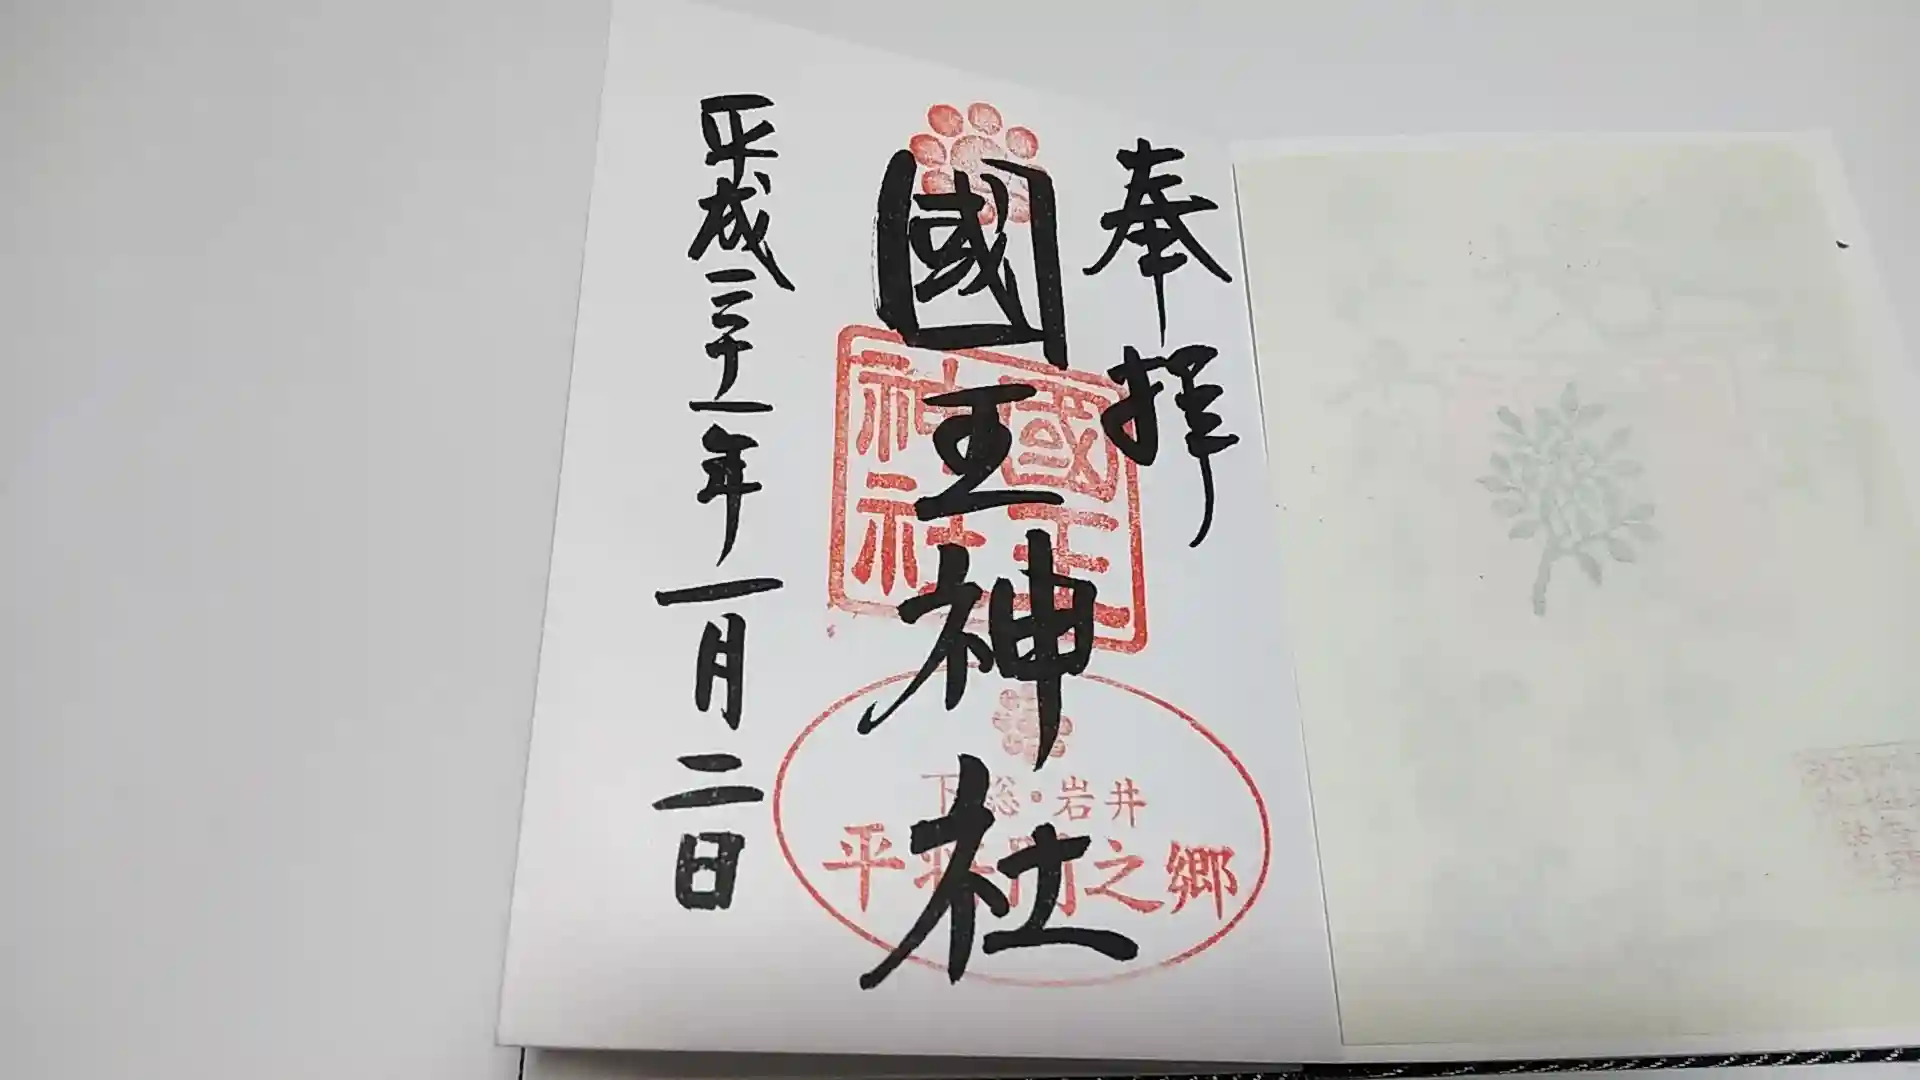 奉拝
國王神社
平成三十一年一月二日
國王
神社
下総・岩井
平将門之郷